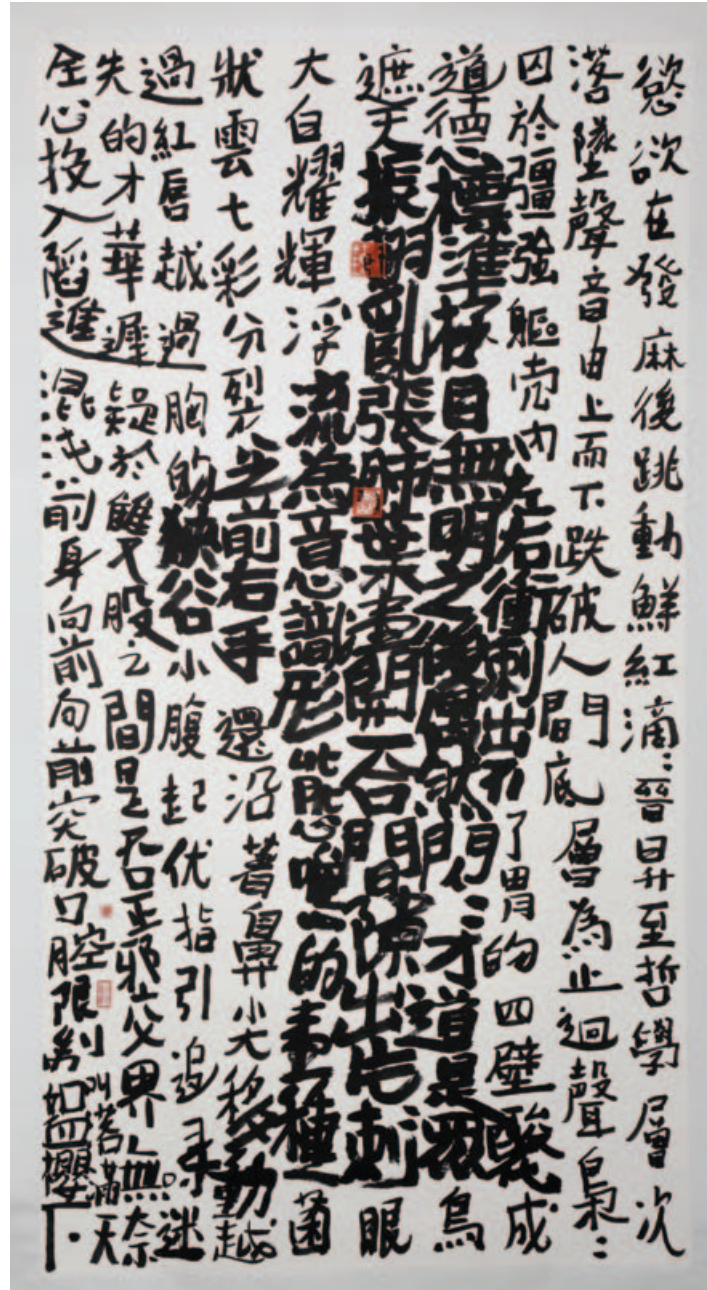 慾欲在發麻後跳動鮮紅滴〻晉昇至哲學層次
落墜聲音由上而下跌破人間底層為止迴聲裊〻
囚於彊強軀壳內左右衝刺出不了胃的四壁醱成
道德標準極目無明之後才道是烏
遮天振翅亂張肺葉開否間隙出芒刺眼
大白耀輝浮流為意識形態唯一的畫種菌
狀雲七彩分裂之前右手還沿著鼻尖移動越
過紅唇越過胸的狹谷小腹起伏指引追尋迷
失的才華遲疑於雙叉股之間是否正邪分界無奈
全心投入陷進混沌前身向前向前突破口腔限制
滿天
血櫻